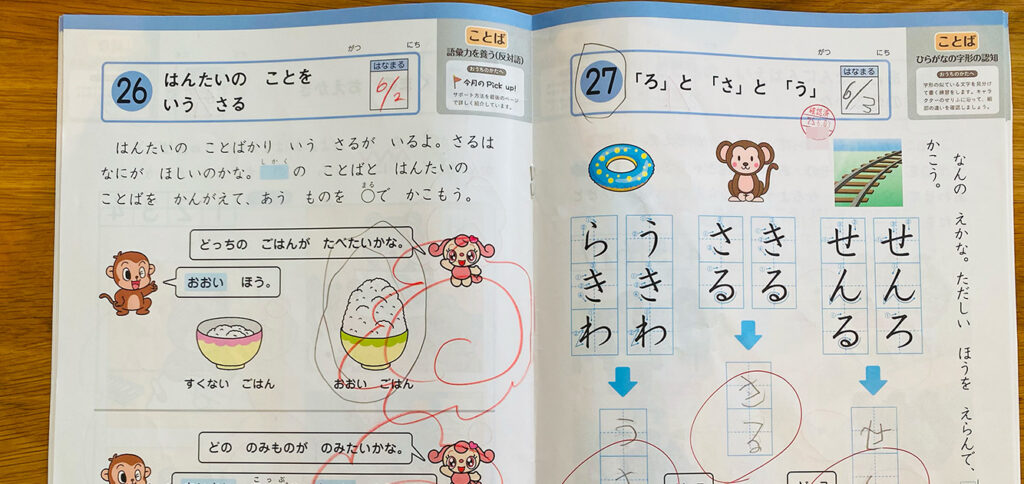 ことば
語彙力を養う(反対語)
おうちのかたへ
今月のPick up!
サポート方法を最後のページ
で詳しく紹介しています。
がつ にち
はなまる
6/2
26 はんたいの ことを
いう さる
はんたいの ことばかり いう さるが いるよ。さるは
なにが ほしいのかな。 の ことばと はんたいの
しかく
ことばを かんがえて、あう ものを ○で かこもう。
まる
どっちの ごはんが たべたいかな。
おおい ほう。
すくない ごはん
おおい ごはん
どの のみものが のみたいかな。
こっぷ
ことば
ひらがなの字形の認知
おうちのかたへ
字形の似ている文字を見分け
て書く練習をします。キャラ
クターのせりふに沿って、細
部の違いを確認しましょう。
がつ にち
はなまる
6/3
27 「ろ」と 「さ」と 「う」
確認済
なんの えかな。ただしい ほうを えらんで、
かこう。
せんろ
せんる
きる
さる
うきわ
らきわ
せ
きる
う